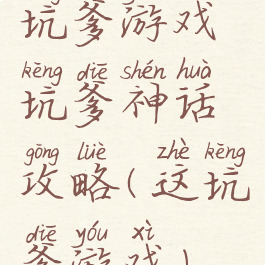 坑爹游戏
kēng diē shén huà
坑爹神话
gōng lüè zhè kēng
攻略(这坑
diē yóu xì
爹游戏)